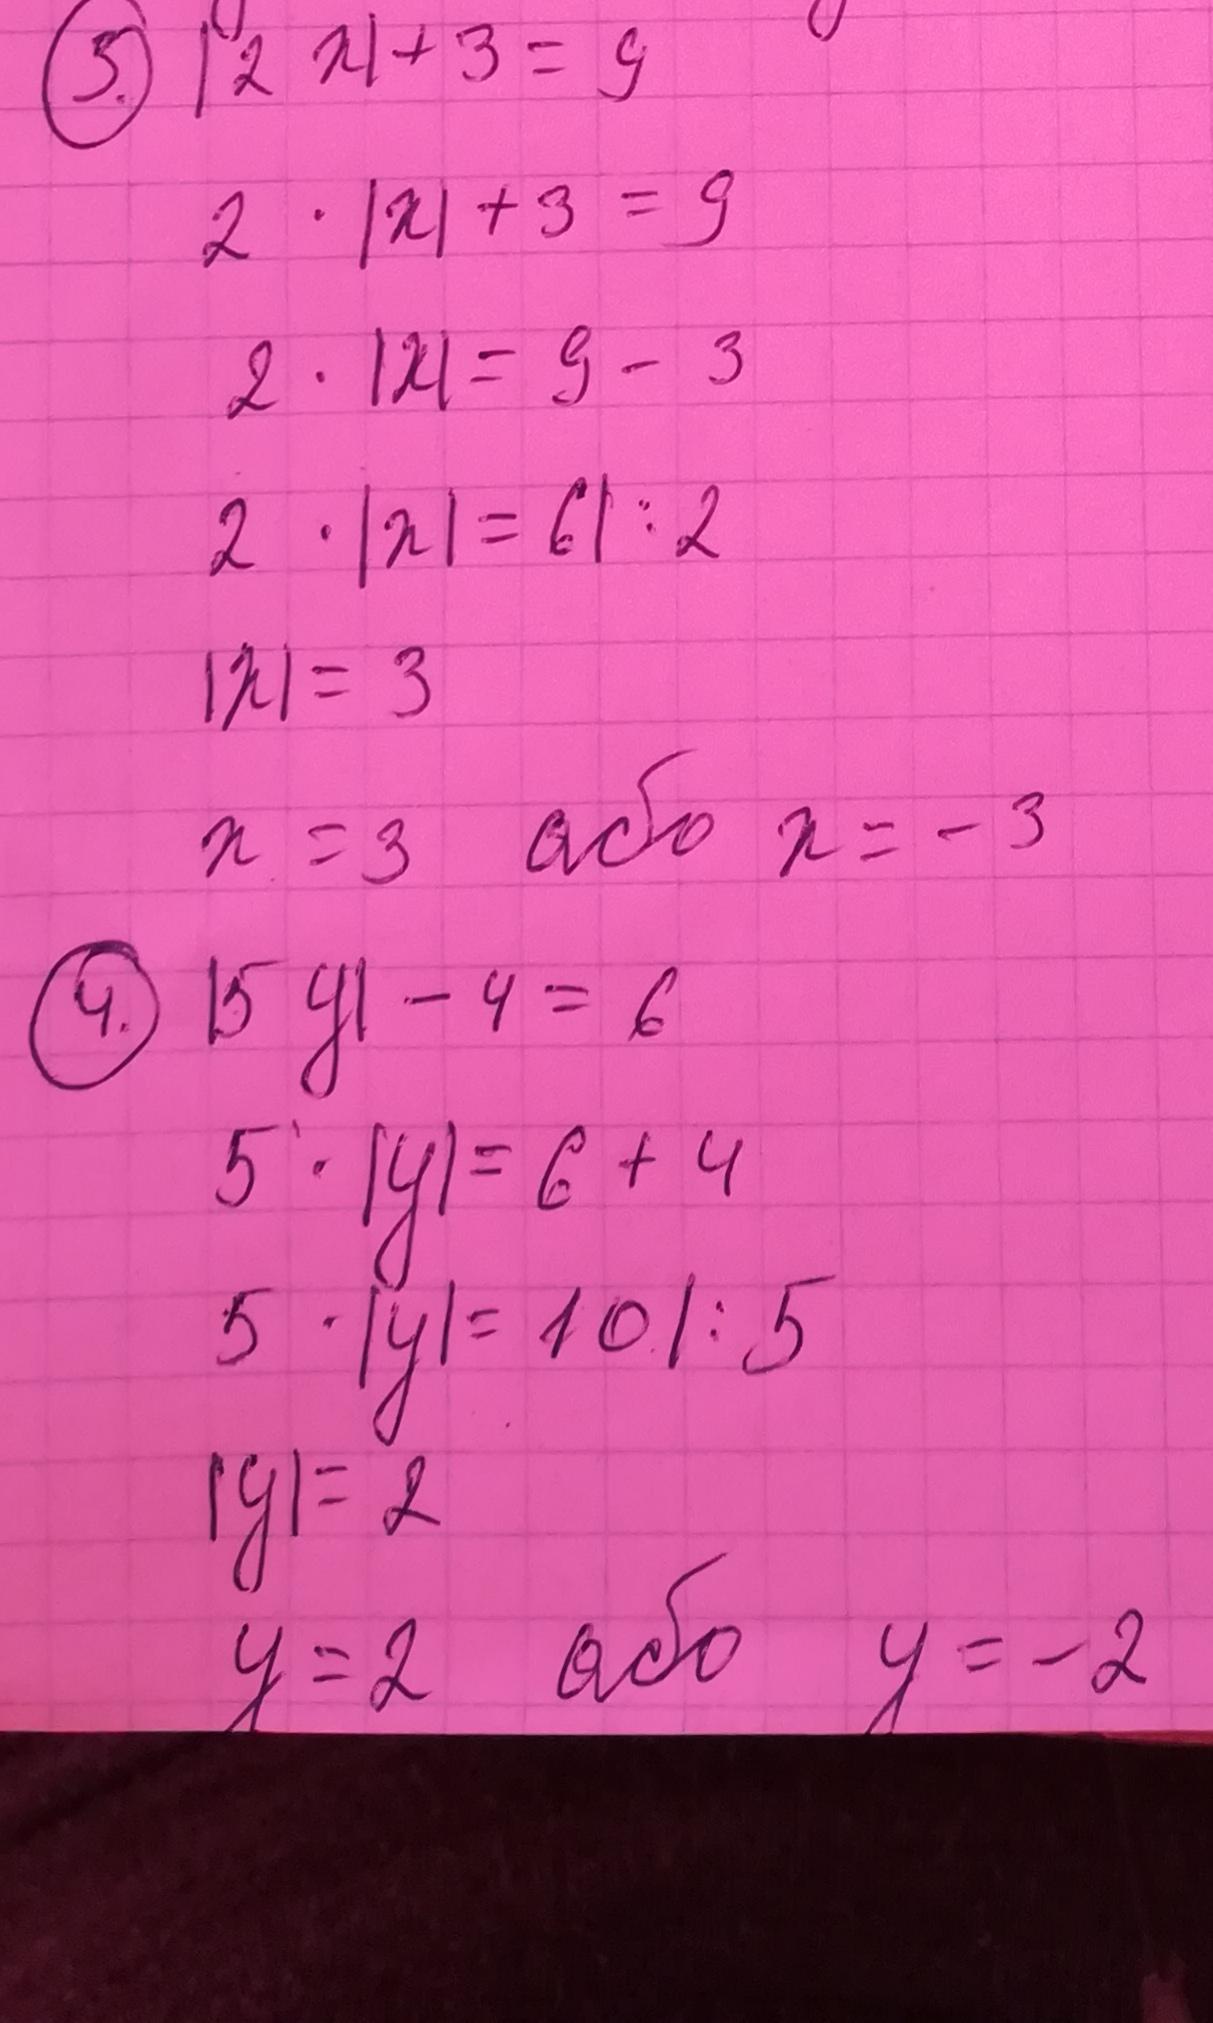 3. |2 x| + 3 = 9
2 · |x| + 3 = 9
2 · |x| = 9 - 3
2 · |x| = 6 | : 2
|x| = 3
x = 3 або x = - 3
4. |5 y| - 4 = 6
5 · |y| = 6 + 4
5 · |y| = 10 | : 5
|y| = 2
y = 2 або y = - 2